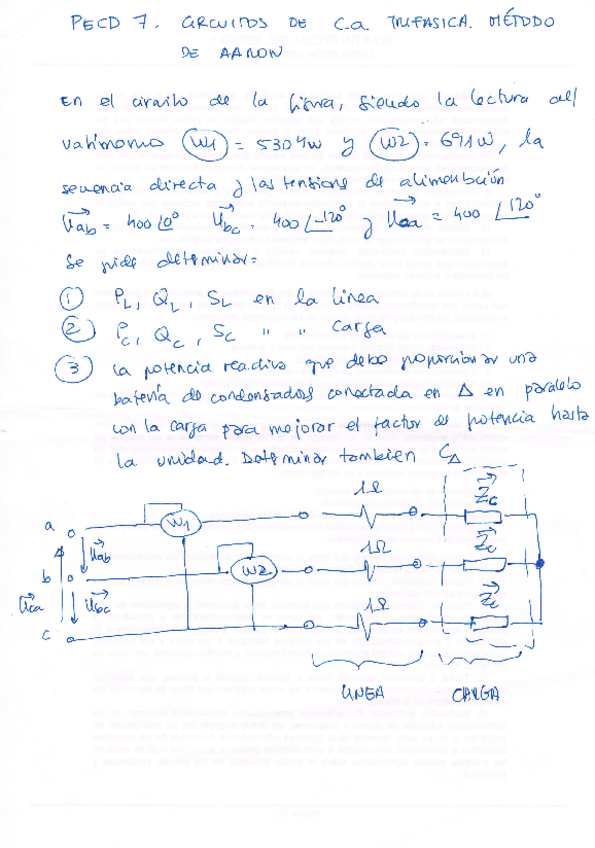 PECD 7. CIRCUITOS DE C.A. TRIFASICA. MÉTODO
DE AARON
En el circuito de la figura, siendo la lectura del
vatímetro W1 = 5304W y W2 = 691W, la
secuencia directa y las tensiones de alimentación
Uab = 400 |0° Ubc = 400 |-120° y Uca = 400 |120°
Se pide determinar:
1 PL, QL, SL en la línea
2 Pc, Qc, Sc " " Carga
3 La potencia reactiva que debe proporcionar una
batería de condensadores conectada en Δ en paralelo
con la carga para mejorar el factor de potencia hasta
la unidad. Determinar tambien CΔ
a W1 1Ω Zc
Uab
b W2 1Ω Zc
Uca Ubc
c 1Ω Zc
LINEA CARGA